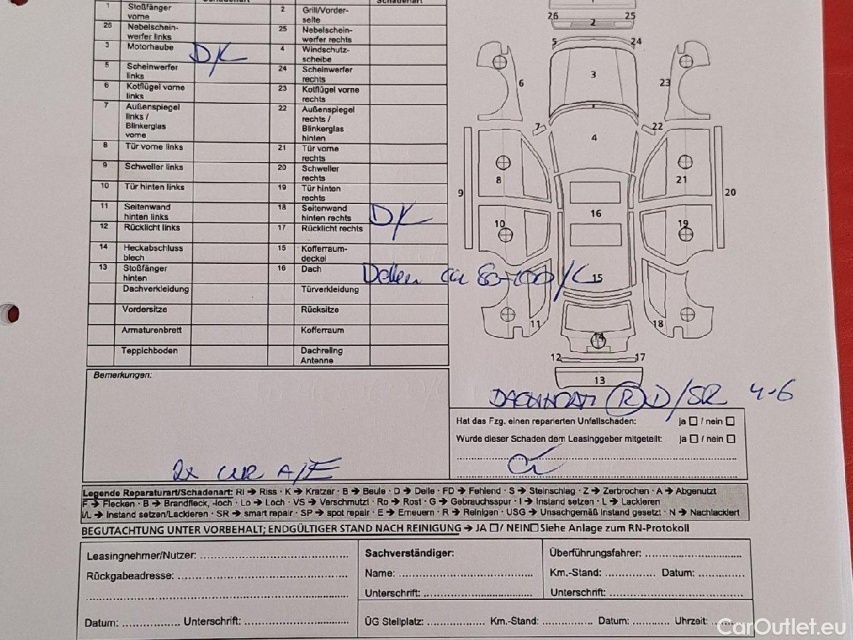 Schadenart
Schadenart
1 Stoßfänger vorne
2 Grill/Vorder-seite
26 Nebelschein-werfer links
25 Nebelschein-werfer rechts
3 Motorhaube DK
4 Windschutz-scheibe
5 Scheinwerfer links
24 Scheinwerfer rechts
6 Kotflügel vorne links
23 Kotflügel vorne rechts
7 Außenspiegel links / Blinkerglas vorne
22 Außenspiegel rechts / Blinkerglas hinten
8 Tür vorne links
21 Tür vorne rechts
9 Schweller links
20 Schweller rechts
10 Tür hinten links
19 Tür hinten rechts
11 Seitenwand hinten links
18 Seitenwand hinten rechts DK
12 Rücklicht links
17 Rücklicht rechts
14 Heckabschluss blech
15 Kofferraum-deckel
13 Stoßfänger hinten
16 Dach Dellen ca 80-100/K
Dachverkleidung
Türverkleidung
Vordersitze
Rücksitze
Armaturenbrett
Kofferraum
Teppichboden
Dachreling Antenne
26 2 25
5 24
3
6 23
7 22
4
8 21
9 20
16
10 19
15
11 18
14
12 17
13
(R) D/SR 4-6
Bemerkungen:
2x A/E
Hat das Fzg. einen reparierten Unfallschaden: ja ☐ / nein ☐
Wurde dieser Schaden dem Leasinggeber mitgeteilt: ja ☐ / nein ☐
Legende Reparaturart/Schadenart: RI → Riss · K → Kratzer · B → Beule · D → Delle · FD → Fehlend · S → Steinschlag · Z → Zerbrochen · A → Abgenutzt
F → Flecken · B → Brandfleck, -loch · Lo → Loch · VS → Verschmutzt · Ro → Rost · G → Gebrauchsspur · I → Instand setzen · L → Lackieren
I/L → Instand setzen/Lackieren · SR → smart repair · SP → spot repair · E → Erneuern · R → Reinigen · USG → Unsachgemäß instand gesetzt · N → Nachlackiert
BEGUTACHTUNG UNTER VORBEHALT; ENDGÜLTIGER STAND NACH REINIGUNG → JA ☐/ NEIN☐ Siehe Anlage zum RN-Protokoll
Leasingnehmer/Nutzer:
Rückgabeadresse:
Datum: Unterschrift:
Sachverständiger:
Name:
Unterschrift:
Überführungsfahrer:
Km.-Stand: Datum:
Unterschrift:
ÜG Stellplatz: Km.-Stand: Datum: Uhrzeit:
CarOutlet.eu